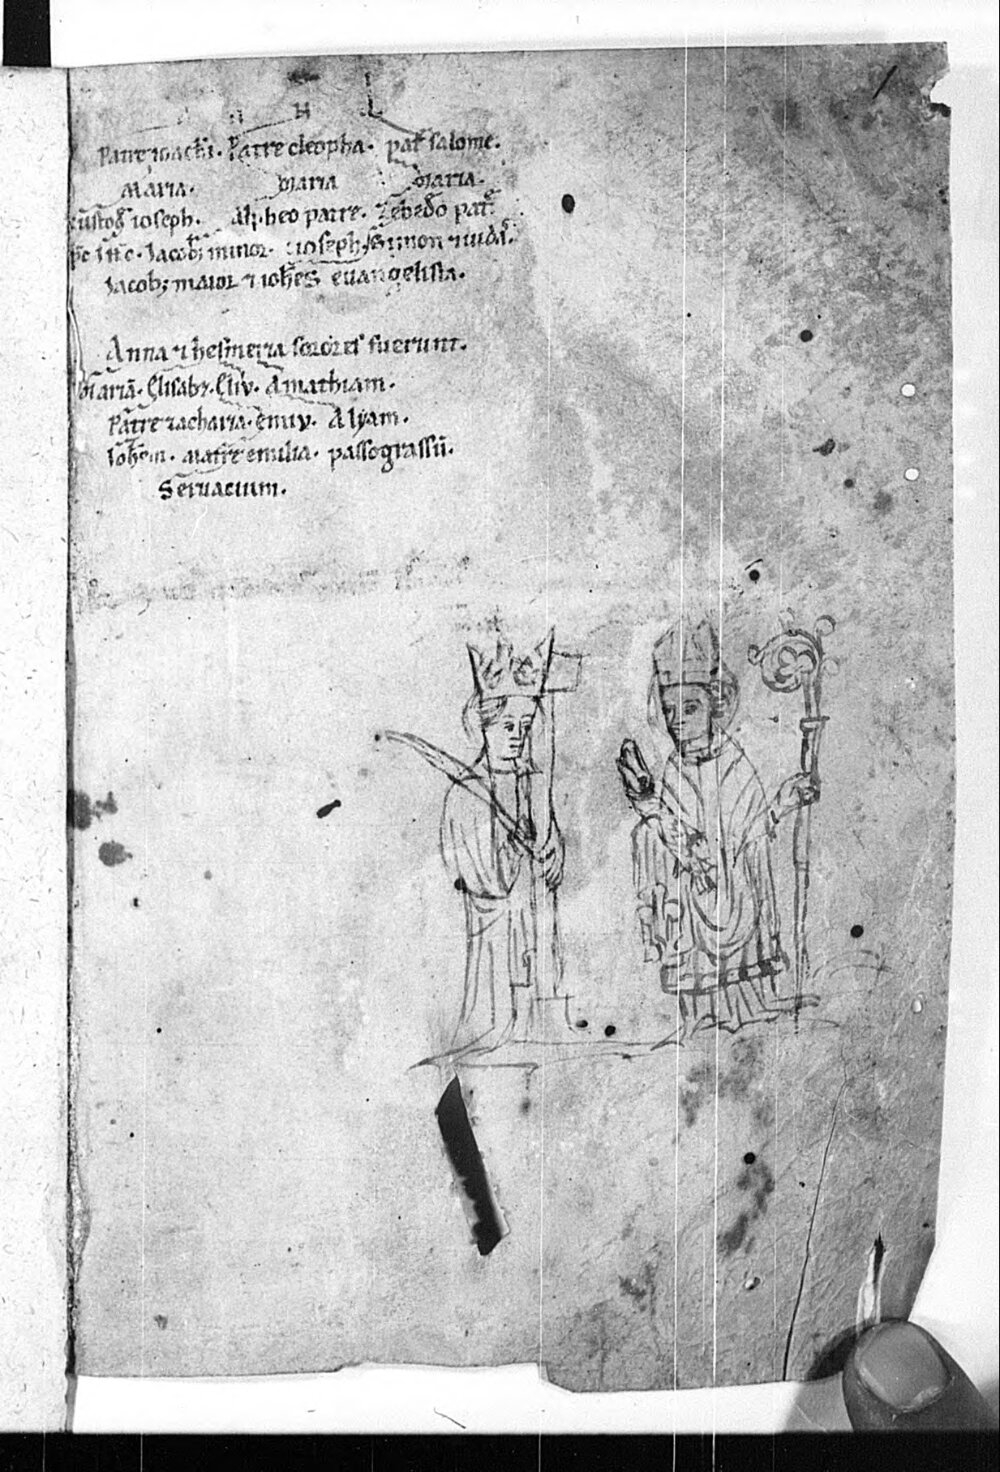 Patre ioachi. Patre cleopha. pat̄ salome.
Maria. Maria Maria.
ioseph. Alpheo patre. Zebedo pat̄
Jacob; minor. ioseph. Simon ⁊ iuda.
Jacob; maior ⁊ ioh̄es evangelista.
Anna ⁊ hesmeria sorores fuerunt.
Mariā. Elisabȝ. Eliv. Amathiam.
Patre zacharia. emiv. Alyam.
Joh̄em. Matre emilia. passograssū.
Seruacium.